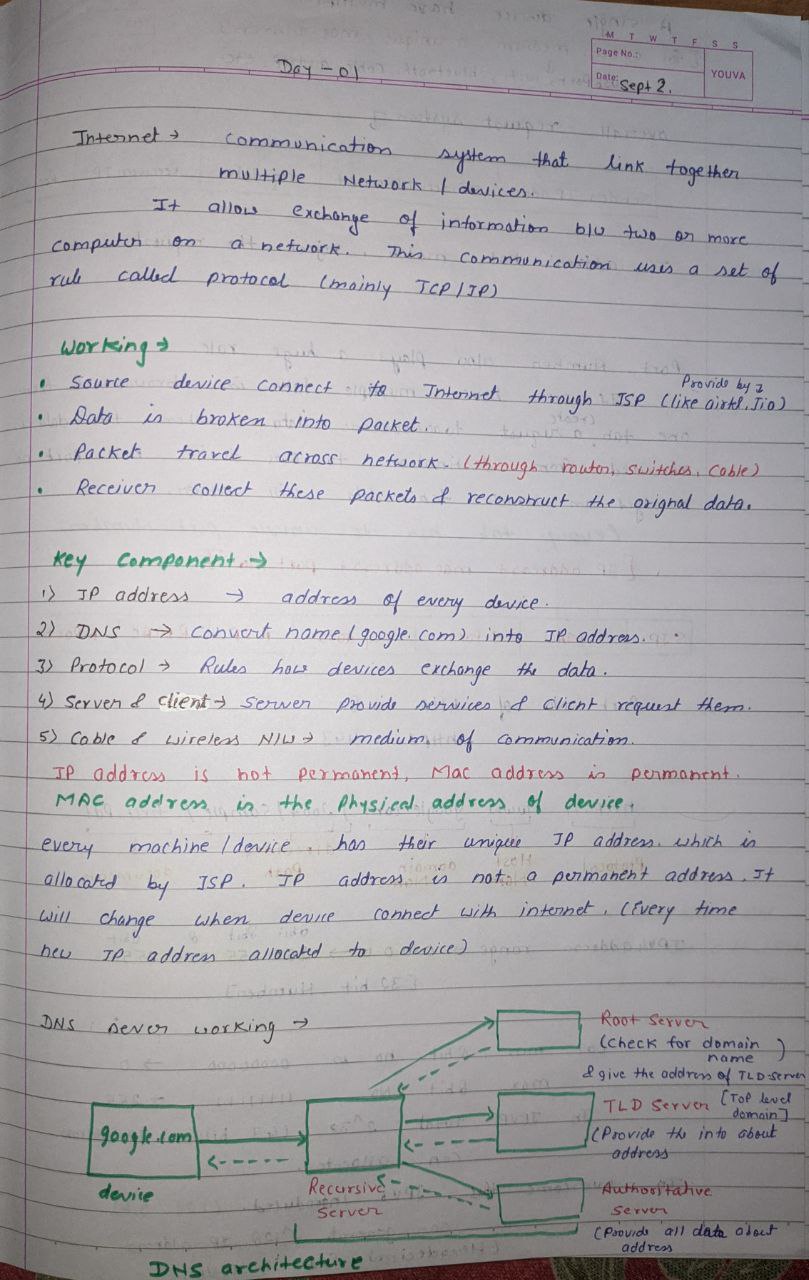 M T W T F S S
Page No.:
Date: Sept 2.
YOUVA
Day - 01
Internet → communication system that link together
multiple Network / devices.
It allow exchange of information b/w two or more
computer on a network. This communication uses a set of
rule called protocol (mainly TCP/IP)
Working →
• Source device connect to Internet through ISP (like airtel, Jio)
Provide by
• Data is broken into packet.
• Packet travel across network. (through router, switches, cable)
• Receiver collect these packets & reconstruct the orignal data.
Key Component →
1) IP address → address of every device.
2) DNS → convert name (google.com) into IP address.
3) Protocol → Rules how devices exchange the data.
4) Server & client → server provide services & client request them.
5) Cable & wireless N/W → medium of communication.
IP address is not permanent, Mac address is permanent.
MAC address is the Physical address of device.
every machine / device. has their unique IP address. which is
allocated by ISP. IP address is not a permanent address. It
will change when device connect with internet. (Every time
new IP address allocated to device)
DNS sever working →
Root Server
(Check for domain name)
& give the address of TLD-server
google.com
device
Recursive
Server
TLD Server [Top level
domain]
(Provide the into about
address
Authoritative
Server
(Provide all data about
address
DNS architecture